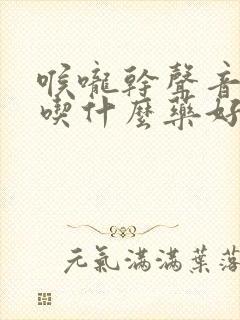 喉嚨幹聲音
喫什麼藥好
元氣滿滿葉落